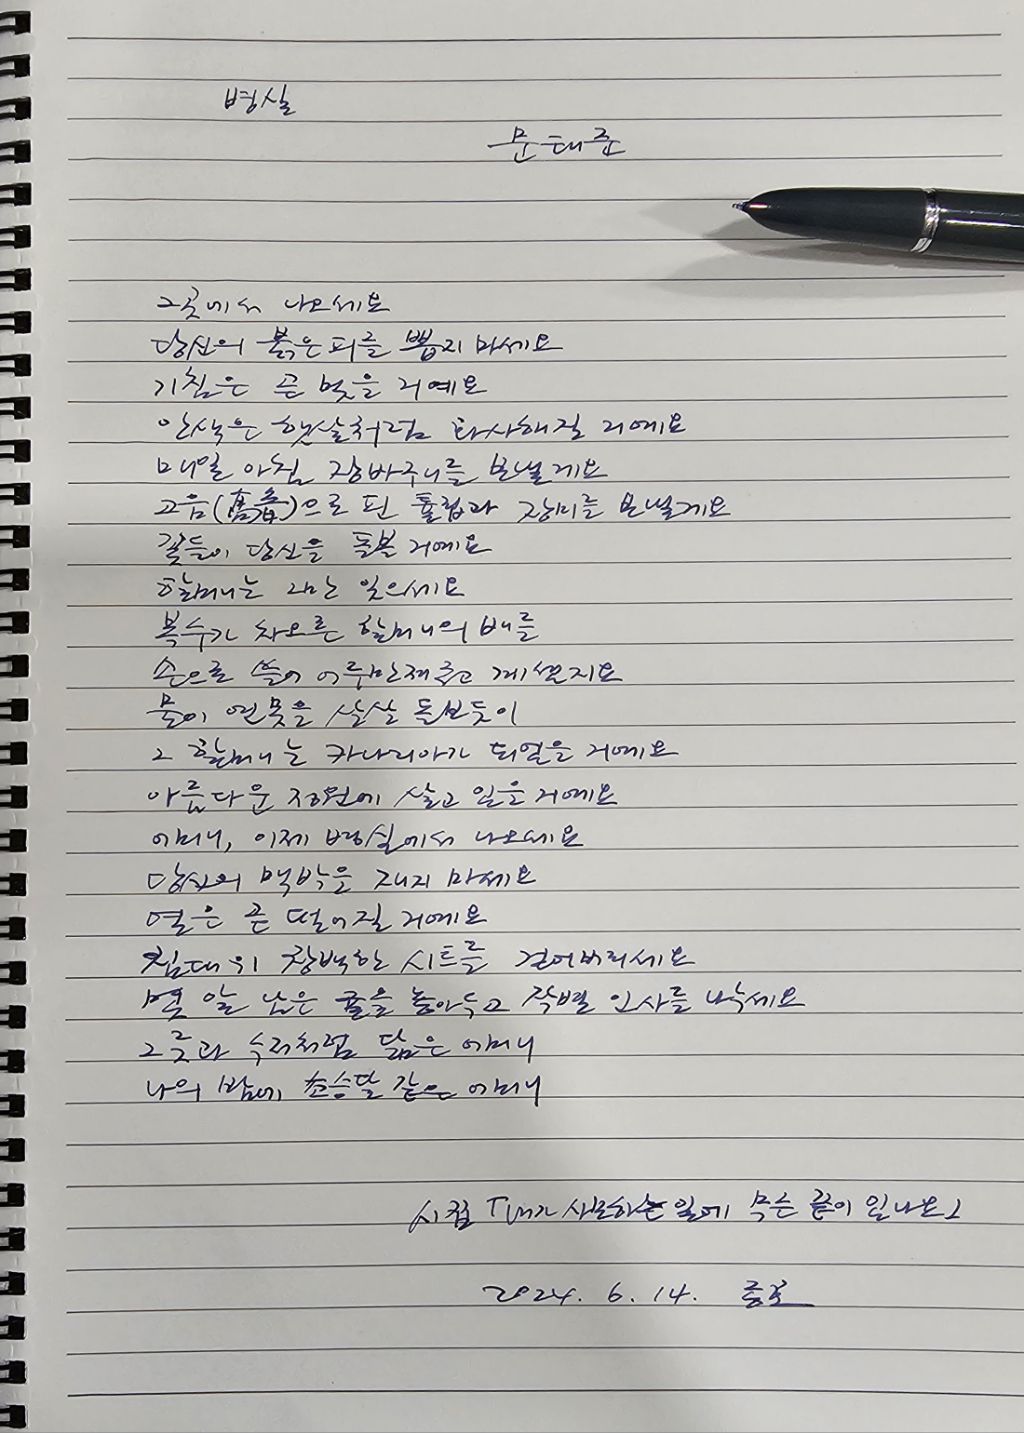 병실
문태준
그곳에서 나오세요
당신의 붉은 피를 뽑지 마세요
기침은 곧 멎을 거예요
안색은 햇살처럼 화사해질 거예요
매일 아침 장바구니를 보낼게요
고음(高音)으로 핀 튤립과 장미를 보낼게요
꽃들이 당신을 돌볼 거예요
할머니는 그만 잊으세요
복수가 차오른 할머니의 배를
손으로 쓸어 어루만져주고 계셨지요
물이 연못을 살살 돌보듯이
그 할머니는 카나리아가 되었을 거예요
아름다운 정원에 살고 있을 거예요
어머니, 이제 병실에서 나오세요
당신의 맥박을 재지 마세요
열은 곧 떨어질 거예요
침대 위 창백한 시트를 걷어버리세요
몇 알 남은 귤을 놓아두고 작별 인사를 나누세요
그릇과 수저처럼 닮은 어머니
나의 밤에 초승달 같은 어머니
시집 「내가 사모하는 일에 무슨 끝이 있나요」
2024. 6. 14.